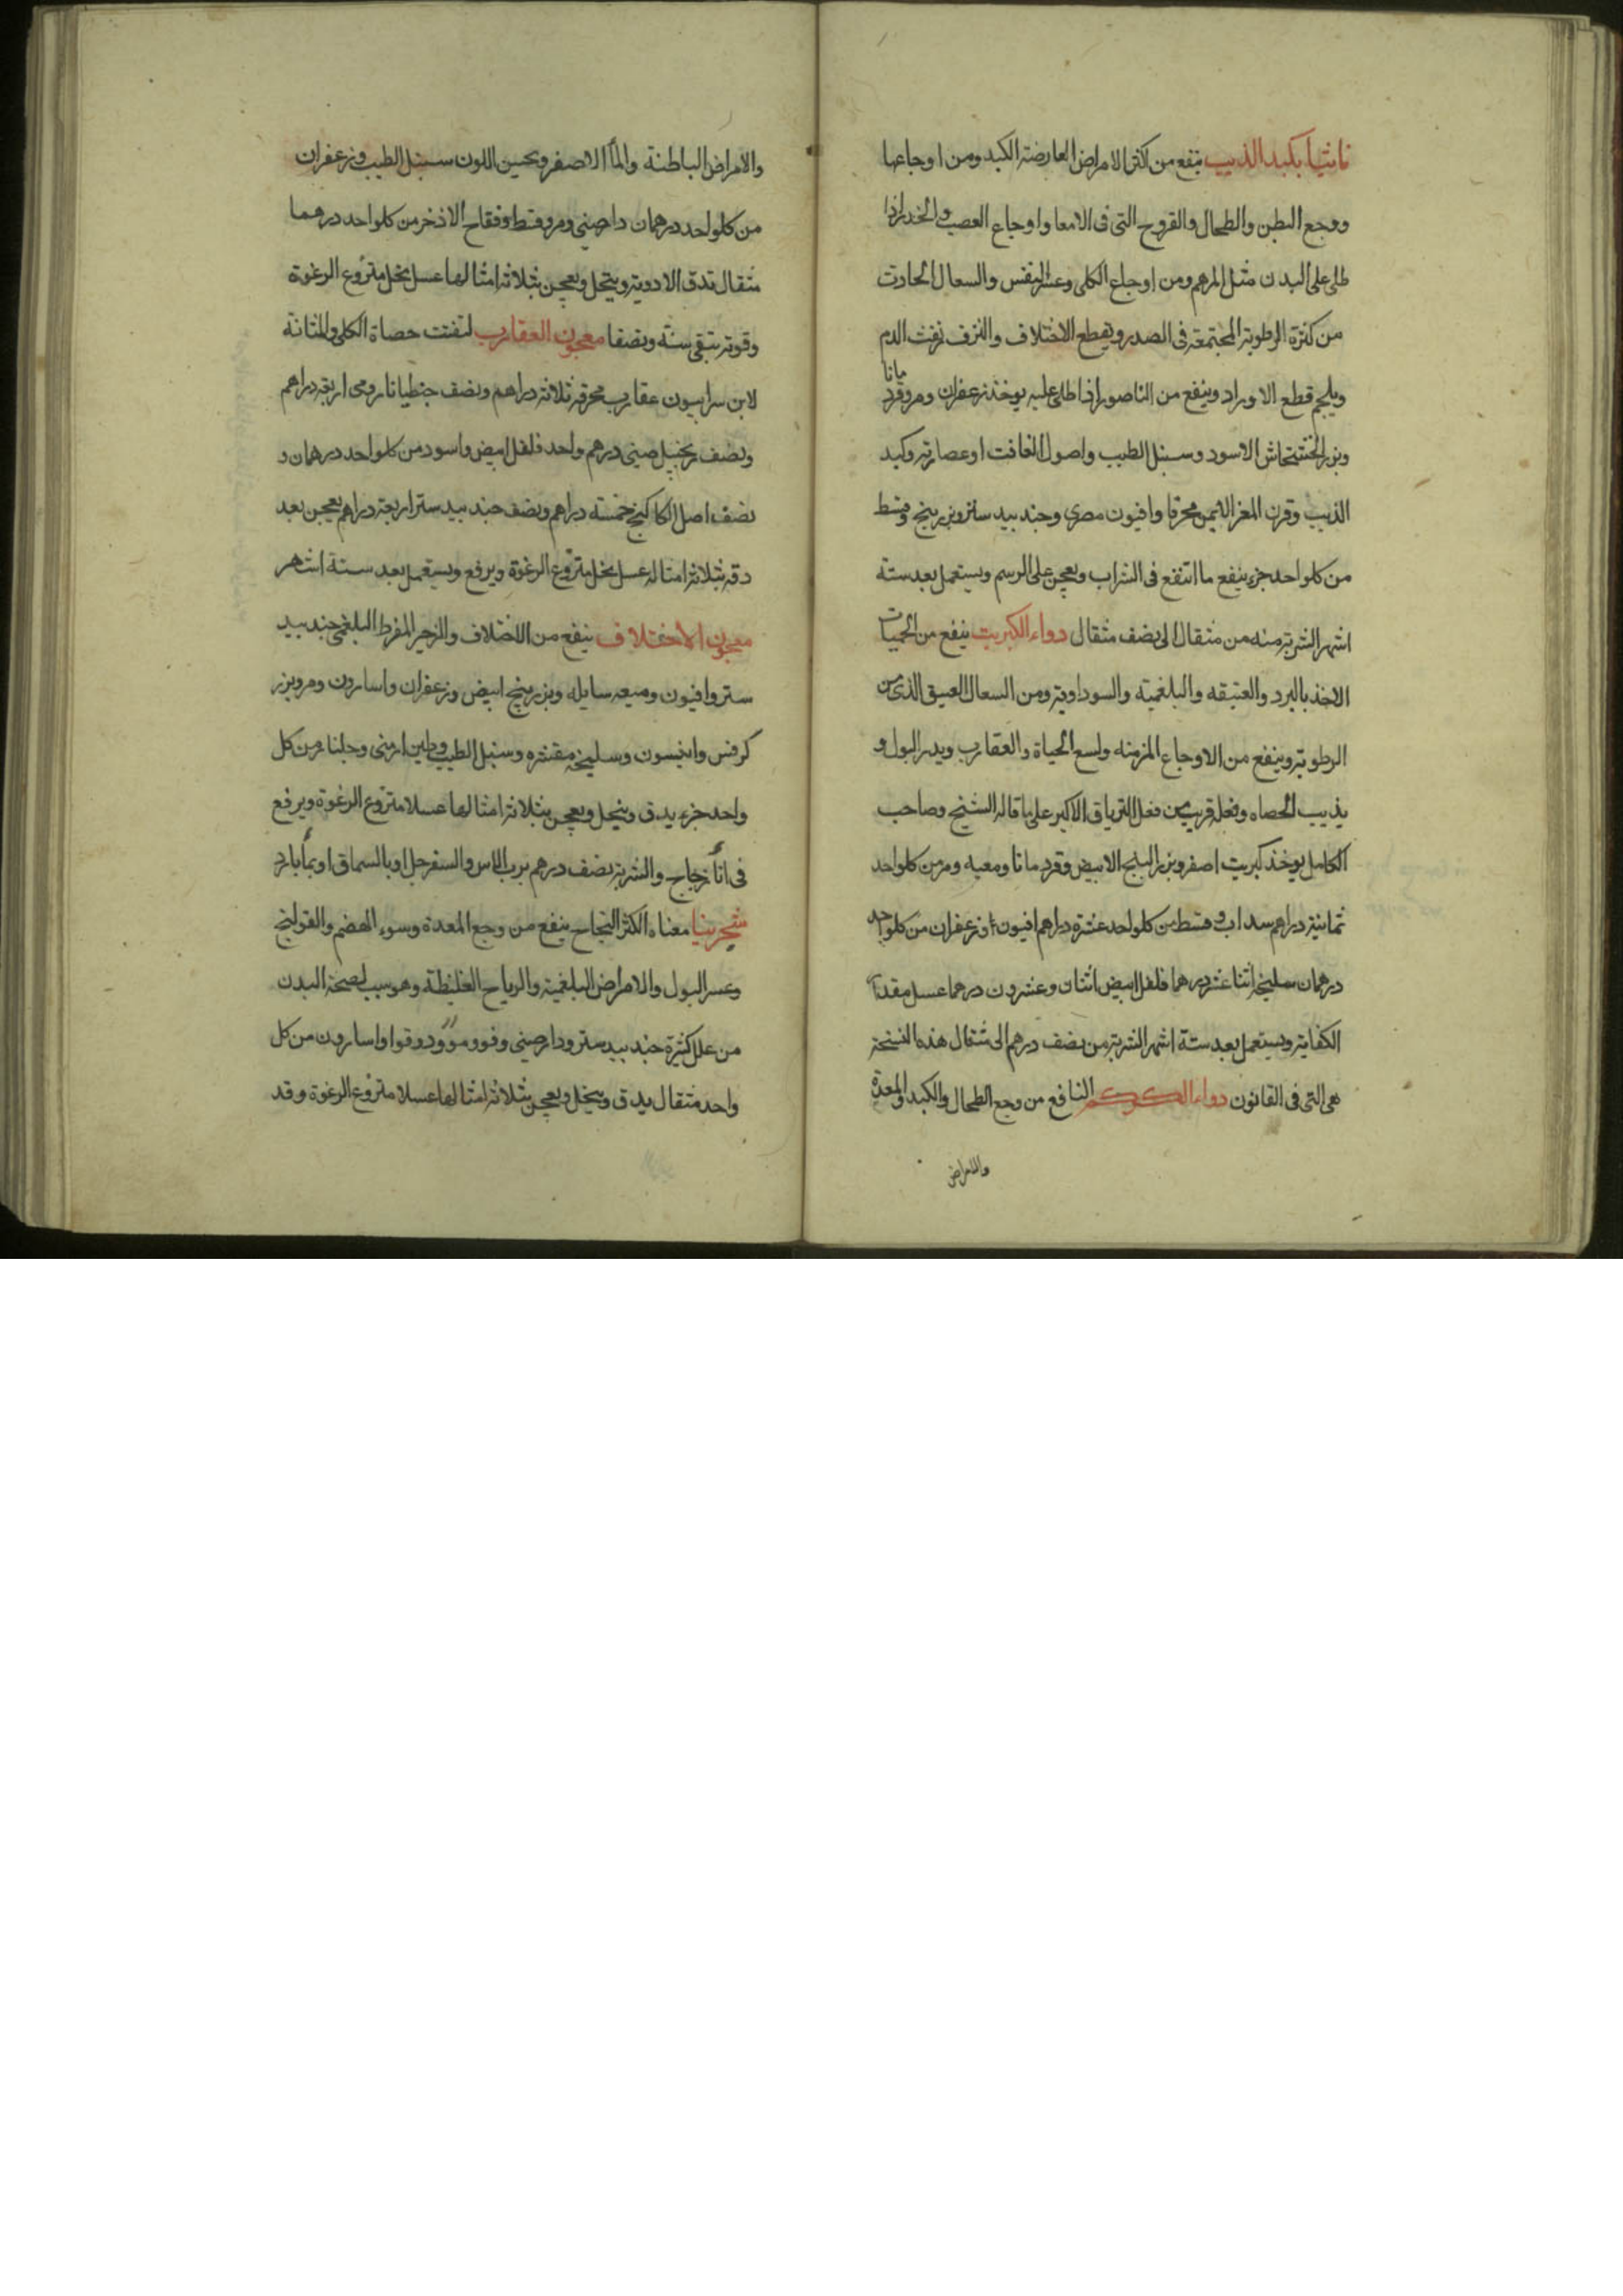 ناشيا بكبد الذيب ينفع من اكثر الامراض العارضة الكبد ومن اوجاعها
ووجع البطن والطحال والقروح التى فى الامعا واوجاع العصب والخدر اذا
طلى على البدن مثل المرهم ومن اوجاع الكلى وعسر النفس والسعال الحادث
من كثرة الرطوبة المجتمعة فى الصدر ويقطع الاختلاف والنزف نفث الدم
ويلحم قطع الاوراد وينفع من الناصور اذا طلى عليه يوخذ زعفران ومر وقرد
مانا
وبزر الخشخاش الاسود وسنبل الطيب واصول الغافت او عصارته وكبد
الذيب وقرن المعز الايمن محرقا وافيون مصرى وجندبيدستر وبزر بنج وقسط
من كلواحد جزء ينقع ما انتقع فى الشراب ويعجن على الرسم ويستعمل بعد ستة
اشهر الشربة منه من مثقال الى نصف مثقال دواء الكبريت ينفع من الحميات
الاخذ بالبرد والعتيقه والبلغمية والسوداوية ومن السعال العتيق الذى من
الرطوبة وينفع من الاوجاع المزمنه ولسع الحياة والعقارب ويدر البول و
يذيب الحصاه وفعله قريب من فعل الترياق الاكبر على ما قاله الشيخ وصاحب
الكامل يوخذ كبريت اصفر وبزر البنج الابيض وقردمانا وميعه ومر من كلواحد
ثمانية دراهم سداب وقسط من كلواحد عشرة دراهم افيون وزعفران من كلواحد
درهمان سليخة اثنا عشر درهما فلفل ابيض اثنان وعشرون درهما عسل مقدار
الكفاية ويستعمل بعد ستة اشهر الشربة من نصف درهم الى مثقال هذه النسخة
هى التى فى القانون دواء الكركم النافع من وجع الطحال والكبد والمعدة
والامراض
والامراض الباطنة والمآ الاصفر ويحسن اللون سنبل الطيب وزعفران
من كلواحد درهمان دارصينى ومر وقسط وفقاح الاذخر من كلواحد درهما
مثقال تدق الادوية وينخل ويعجن بثلاثة امثالها عسل نحل منزوع الرغوة
وقوته تبقى سنة ونصفا معجون العقارب لتفتت حصاة الكلى والمثانة
لابن سرابيون عقارب محرقه ثلاثة دراهم ونصف جنطيانا رومى اربعة دراهم
ونصف زنجبيل صينى درهم واحد فلفل ابيض واسود من كلواحد درهمان و
نصف اصل الكاكنج خمسة دراهم ونصف جندبيدستر اربعة دراهم يعجن بعد
دقه بثلاثة امثاله عسل نحل منزوع الرغوة ويرفع ويستعمل بعد ستة اشهر
معجون الاختلاف ينفع من الاختلاف والزحير المفرط البلغمى جندبيد
ستر وافيون وميعه سايله وبزر بنج ابيض وزعفران واسارون ومر وبزر
كرفس وانيسون وسليخه مقشره وسنبل الطيب وطين ارمنى وجلنار من كل
واحد جزء يدق وينخل ويعجن بثلاثة امثالها عسلا منزوع الرغوة ويرفع
فى انآ زجاج والشربة نصف درهم برب الاس والسفرجل او بالسماق او بمآ بارد
شجرينيا معناه الكثر النجاح ينفع من وجع المعدة وسوء الهضم والقولنج
وعسر البول والامراض البلغمية والرياح الغليظة وهو سبب لصحة البدن
من علل كثيرة جندبيدستر ودارصينى وفوو مو ودوقوا واسارون من كل
واحد مثقال يدق وينخل ويعجن بثلاثة امثالها عسلا منزوع الرغوة وقد